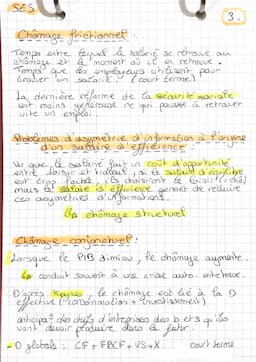 SES
3.
Chômage frictionnel :
Temps entre lequel le salarié se retrouve au
chômage et le moment où il en retrouve.
Temps que les employeurs utilisent pour
trouver un salarié. (court terme)
La dernière réforme de la sécurité sociale
est moins généreuse ce qui pousse à retrouver
vite un emploi.
Problèmes d'asymétrie d'information à l'origine
d'un salaire d'efficience :
Vu que le salarié fait un coût d'opportunité
entre loisir et travail, si le salaire d'équilibre
est trop faible, ils choisiront le loisir (=chô)
mais le salaire d'efficience permet de réduire
ces asymétries d'informations.
↳ chômage structurel
Chômage conjoncturel :
Lorsque le PIB diminue, le chômage augmente.
↳ conduit souvent à une crise auto-entretenue.
D'après Keynes, le chômage est lié à la D
effective (consommation + investissement)
anticipat° des chefs d'entreprises des b et s qu'ils
vont devoir produire dans le futur.
- D globale : CF + FBCF + VS + X. court terme